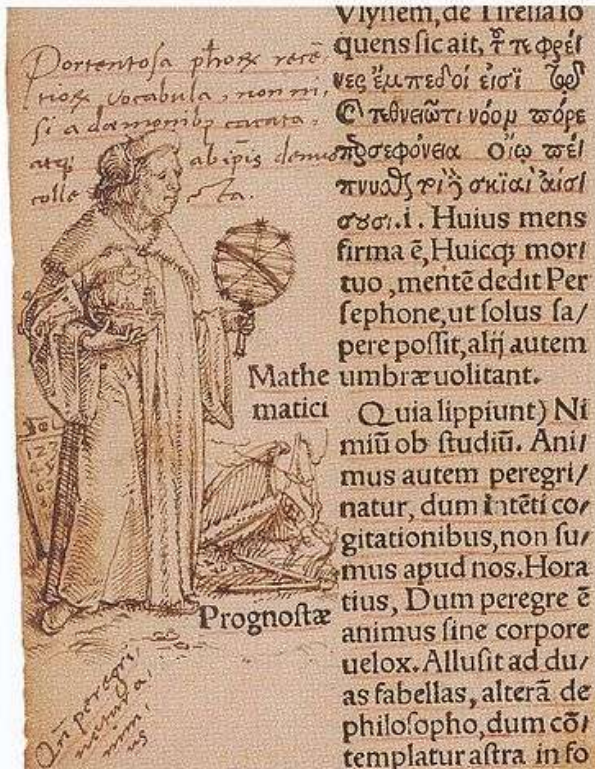 Portentosa phorꝝ recē,
tiorꝝ vocabula, non ni,
si a dæmonibꝰ cacata,
atqꝫ ab ipīs
colle cta.
Mathe
matici
Prognostæ
Qn̄ peregri,
natur a,
nim,
us
Vlyssem, de Tiresia lo
quens sic ait, τ τε φρέ
νες ἔμπεδοί εἰσὶ
τεθνειῶτι νόομ πόρε
πρσεφόνεια οἴω πέ
πνυσθ
σουσι.i. Huius mens
firma ē, Huicqꝫ mor/
tuo, mentē dedit Per
sephone, ut solus sa/
pere possit, alij autem
umbræ uolitant.
Quia lippiunt) Ni
miū ob studiū. Ani/
mus autem peregri/
natur, dum intēti co/
gitationibus, non su/
mus apud nos. Hora
tius, Dum peregre ē
animus sine corpore
uelox. Allusit ad du/
as fabellas, alterā de
philosopho, dum cō/
templatur astra in fo